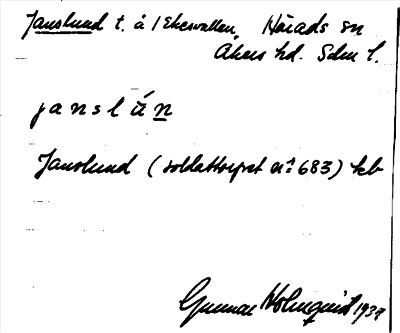 Janslund t. å /Ekesvallen, Härads sn
Åkers hd. Sdm l.
janslún
Janslund (soldattorpet n:o 683) kb
Gunnar Holmquist 1939